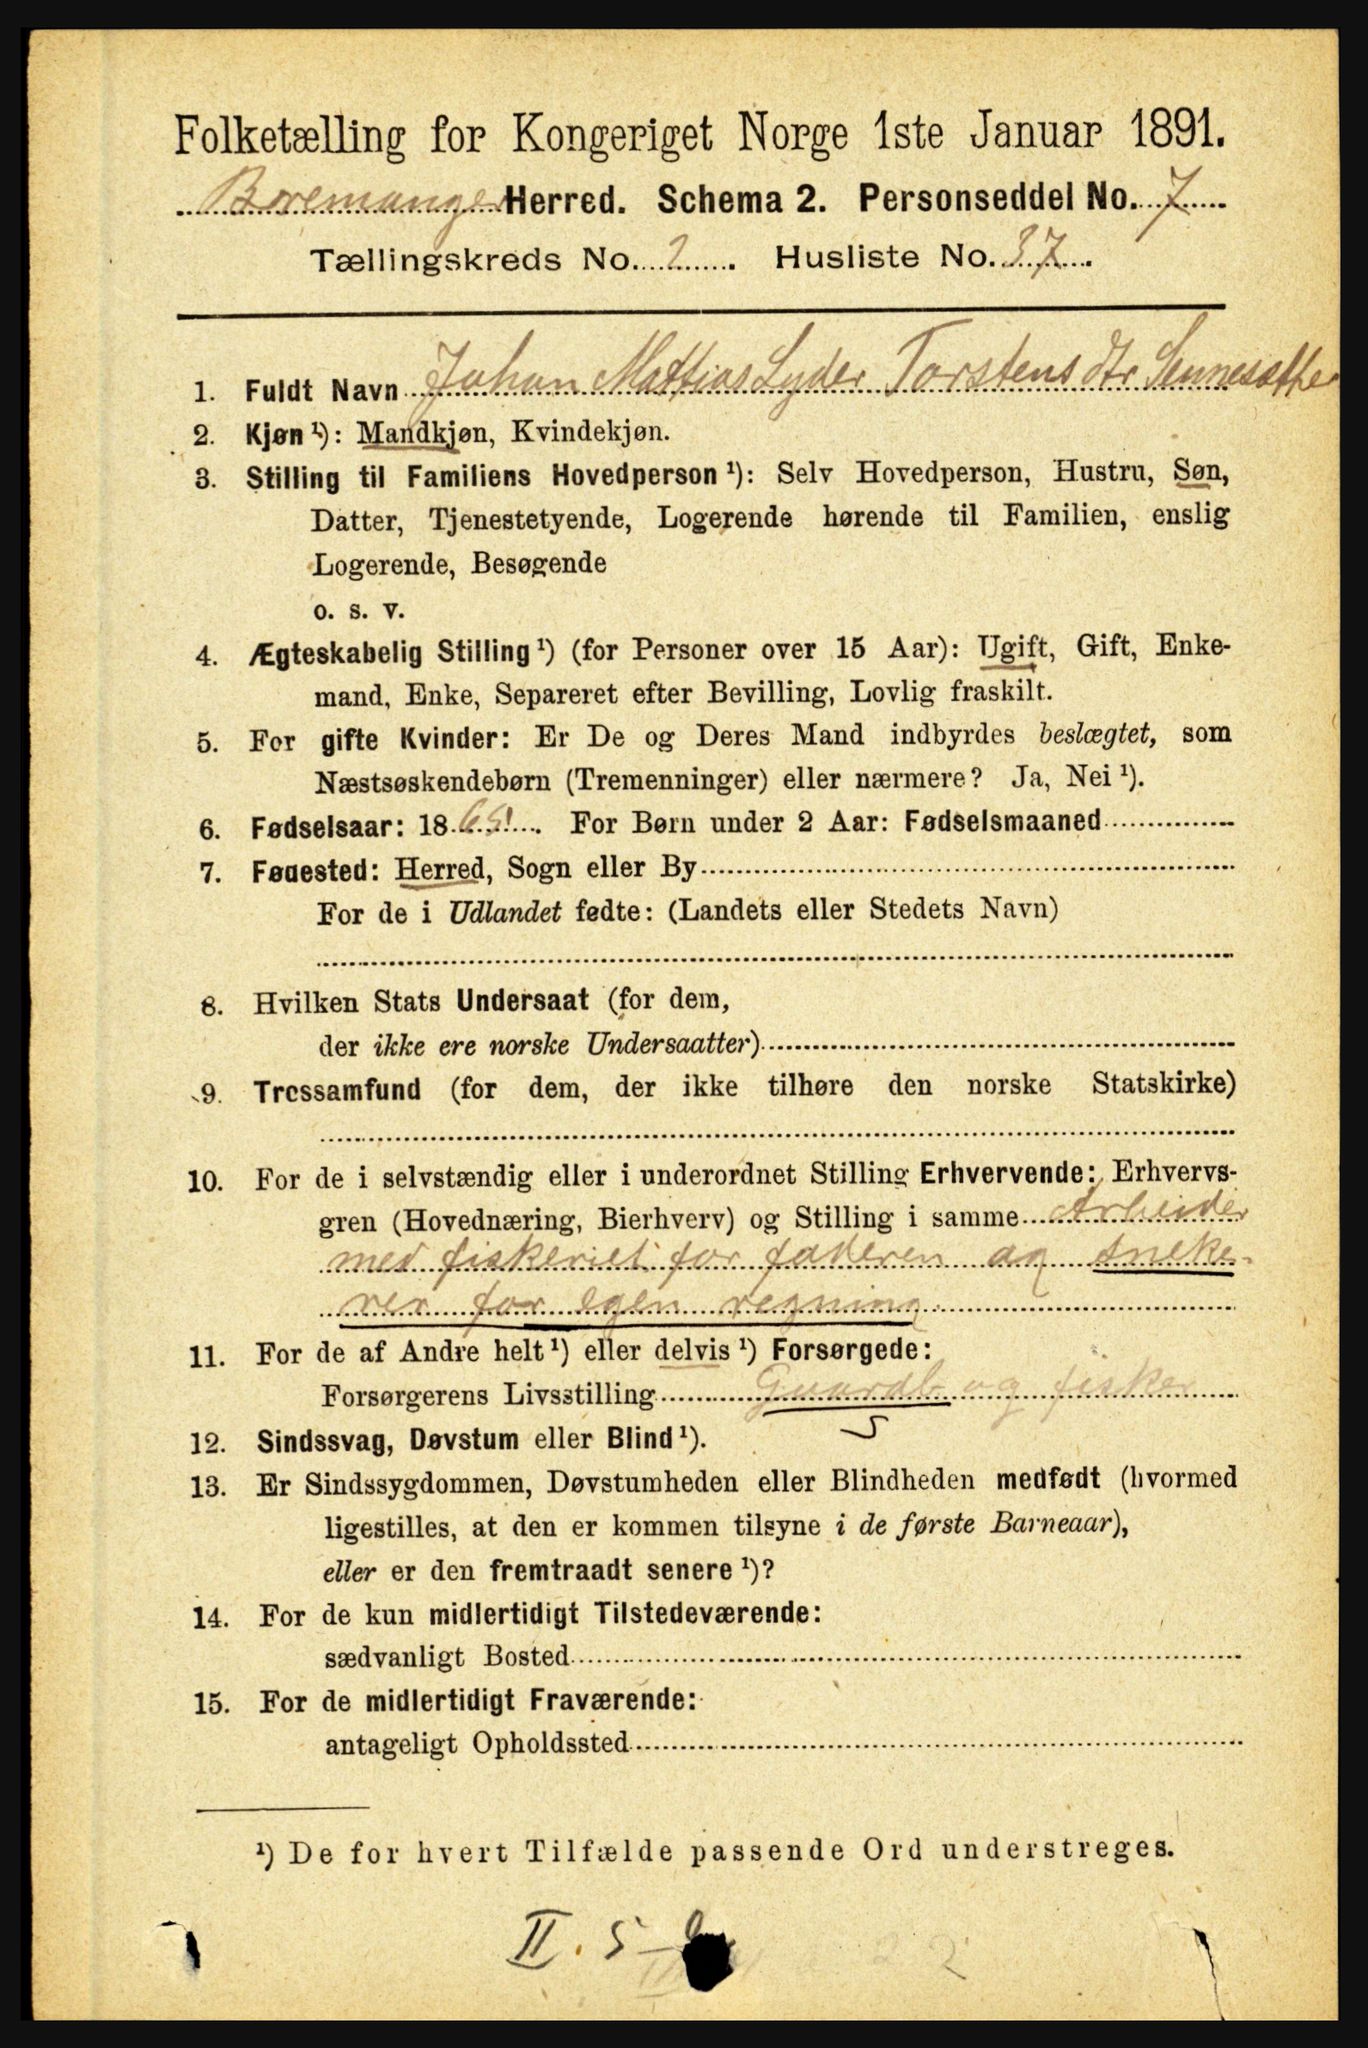 Folketælling for Kongeriget Norge 1ste Januar 1891.
Bremanger Herred. Schema 2. Personseddel No. 7
Tællingskreds No. 2. Husliste No. 37.
1. Fuldt Navn Johan Mattias Lyder Torstens
2. Kjøn ¹): Mandkjøn, Kvindekjøn.
3. Stilling til Familiens Hovedperson ¹): Selv Hovedperson, Hustru, Søn,
Datter, Tjenestetyende, Logerende hørende til Familien, enslig
Logerende, Besøgende
o. s. v.
4. Ægteskabelig Stilling ¹) (for Personer over 15 Aar): Ugift, Gift, Enke-
mand, Enke, Separeret efter Bevilling, Lovlig fraskilt.
5. For gifte Kvinder: Er De og Deres Mand indbyrdes beslægtet, som
Næstsøskendebørn (Tremenninger) eller nærmere? Ja, Nei ¹).
6. Fødselsaar: 18 . For Børn under 2 Aar: Fødselsmaaned
7. Fødested: Herred, Sogn eller By
For de i Udlandet fødte: (Landets eller Stedets Navn)
8. Hvilken Stats Undersaat (for dem,
der ikke ere norske Undersaatter)
9. Trossamfund (for dem, der ikke tilhøre den norske Statskirke)
10. For de i selvstændig eller i underordnet Stilling Erhvervende: Erhvervs-
gren (Hovednæring, Bierhverv) og Stilling i samme Arbeider
med fiskeriet for faderen og sneke-
rer for egen regning
11. For de af Andre helt ¹) eller delvis ¹) Forsørgede:
Forsørgerens Livsstilling Gaardb og fisker
S
12. Sindssvag, Døvstum eller Blind ¹).
13. Er Sindssygdommen, Døvstumheden eller Blindheden medfødt (hvormed
ligestilles, at den er kommen tilsyne i de første Barneaar),
eller er den fremtraadt senere ¹)?
14. For de kun midlertidigt Tilstedeværende:
sædvanligt Bosted
15. For de midlertidigt Fraværende:
antageligt Opholdssted
¹) De for hvert Tilfælde passende Ord understreges.
II. 5